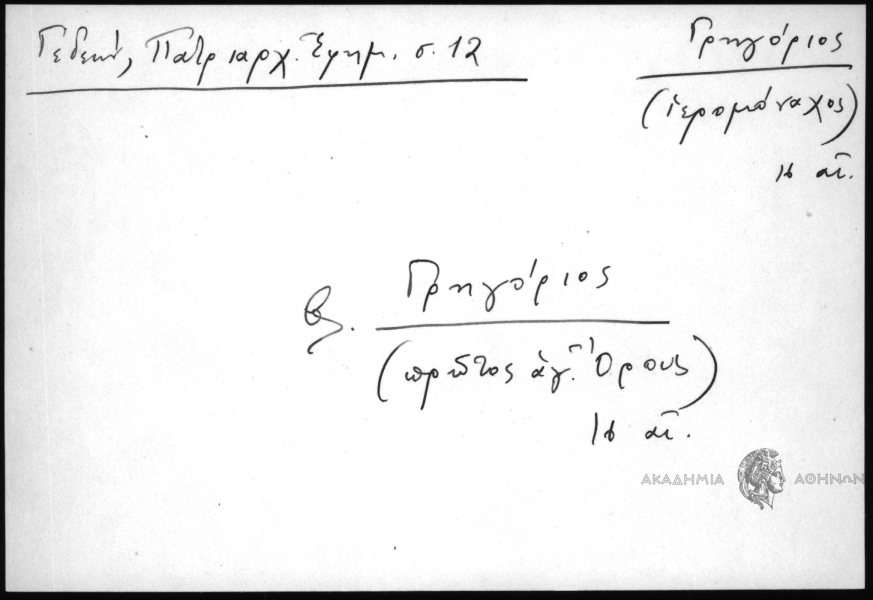 Γεδεών, Πατριαρχ. Ἐφημ. σ. 12
Γρηγόριος
(ἱερομόναχος)
16 αἰ.
βλ. Γρηγόριος
(πρῶτος ἁγ. Ὄρους)
16 αἰ.
ΑΚΑΔΗΜΙΑ ΑΘΗΝΩΝ